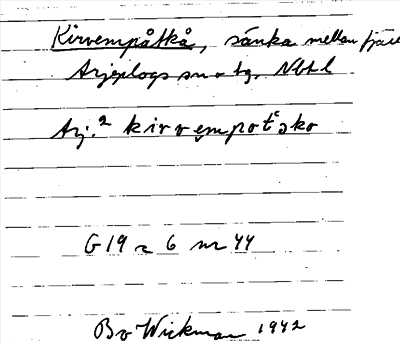 Kirvempåtkå, sänka mellan fjäll
Arjeplogs sn o tg, Nbtl
Arj.² kirvempotʿsko
G 19 a 6 nr 44
Bo Wickman 1942